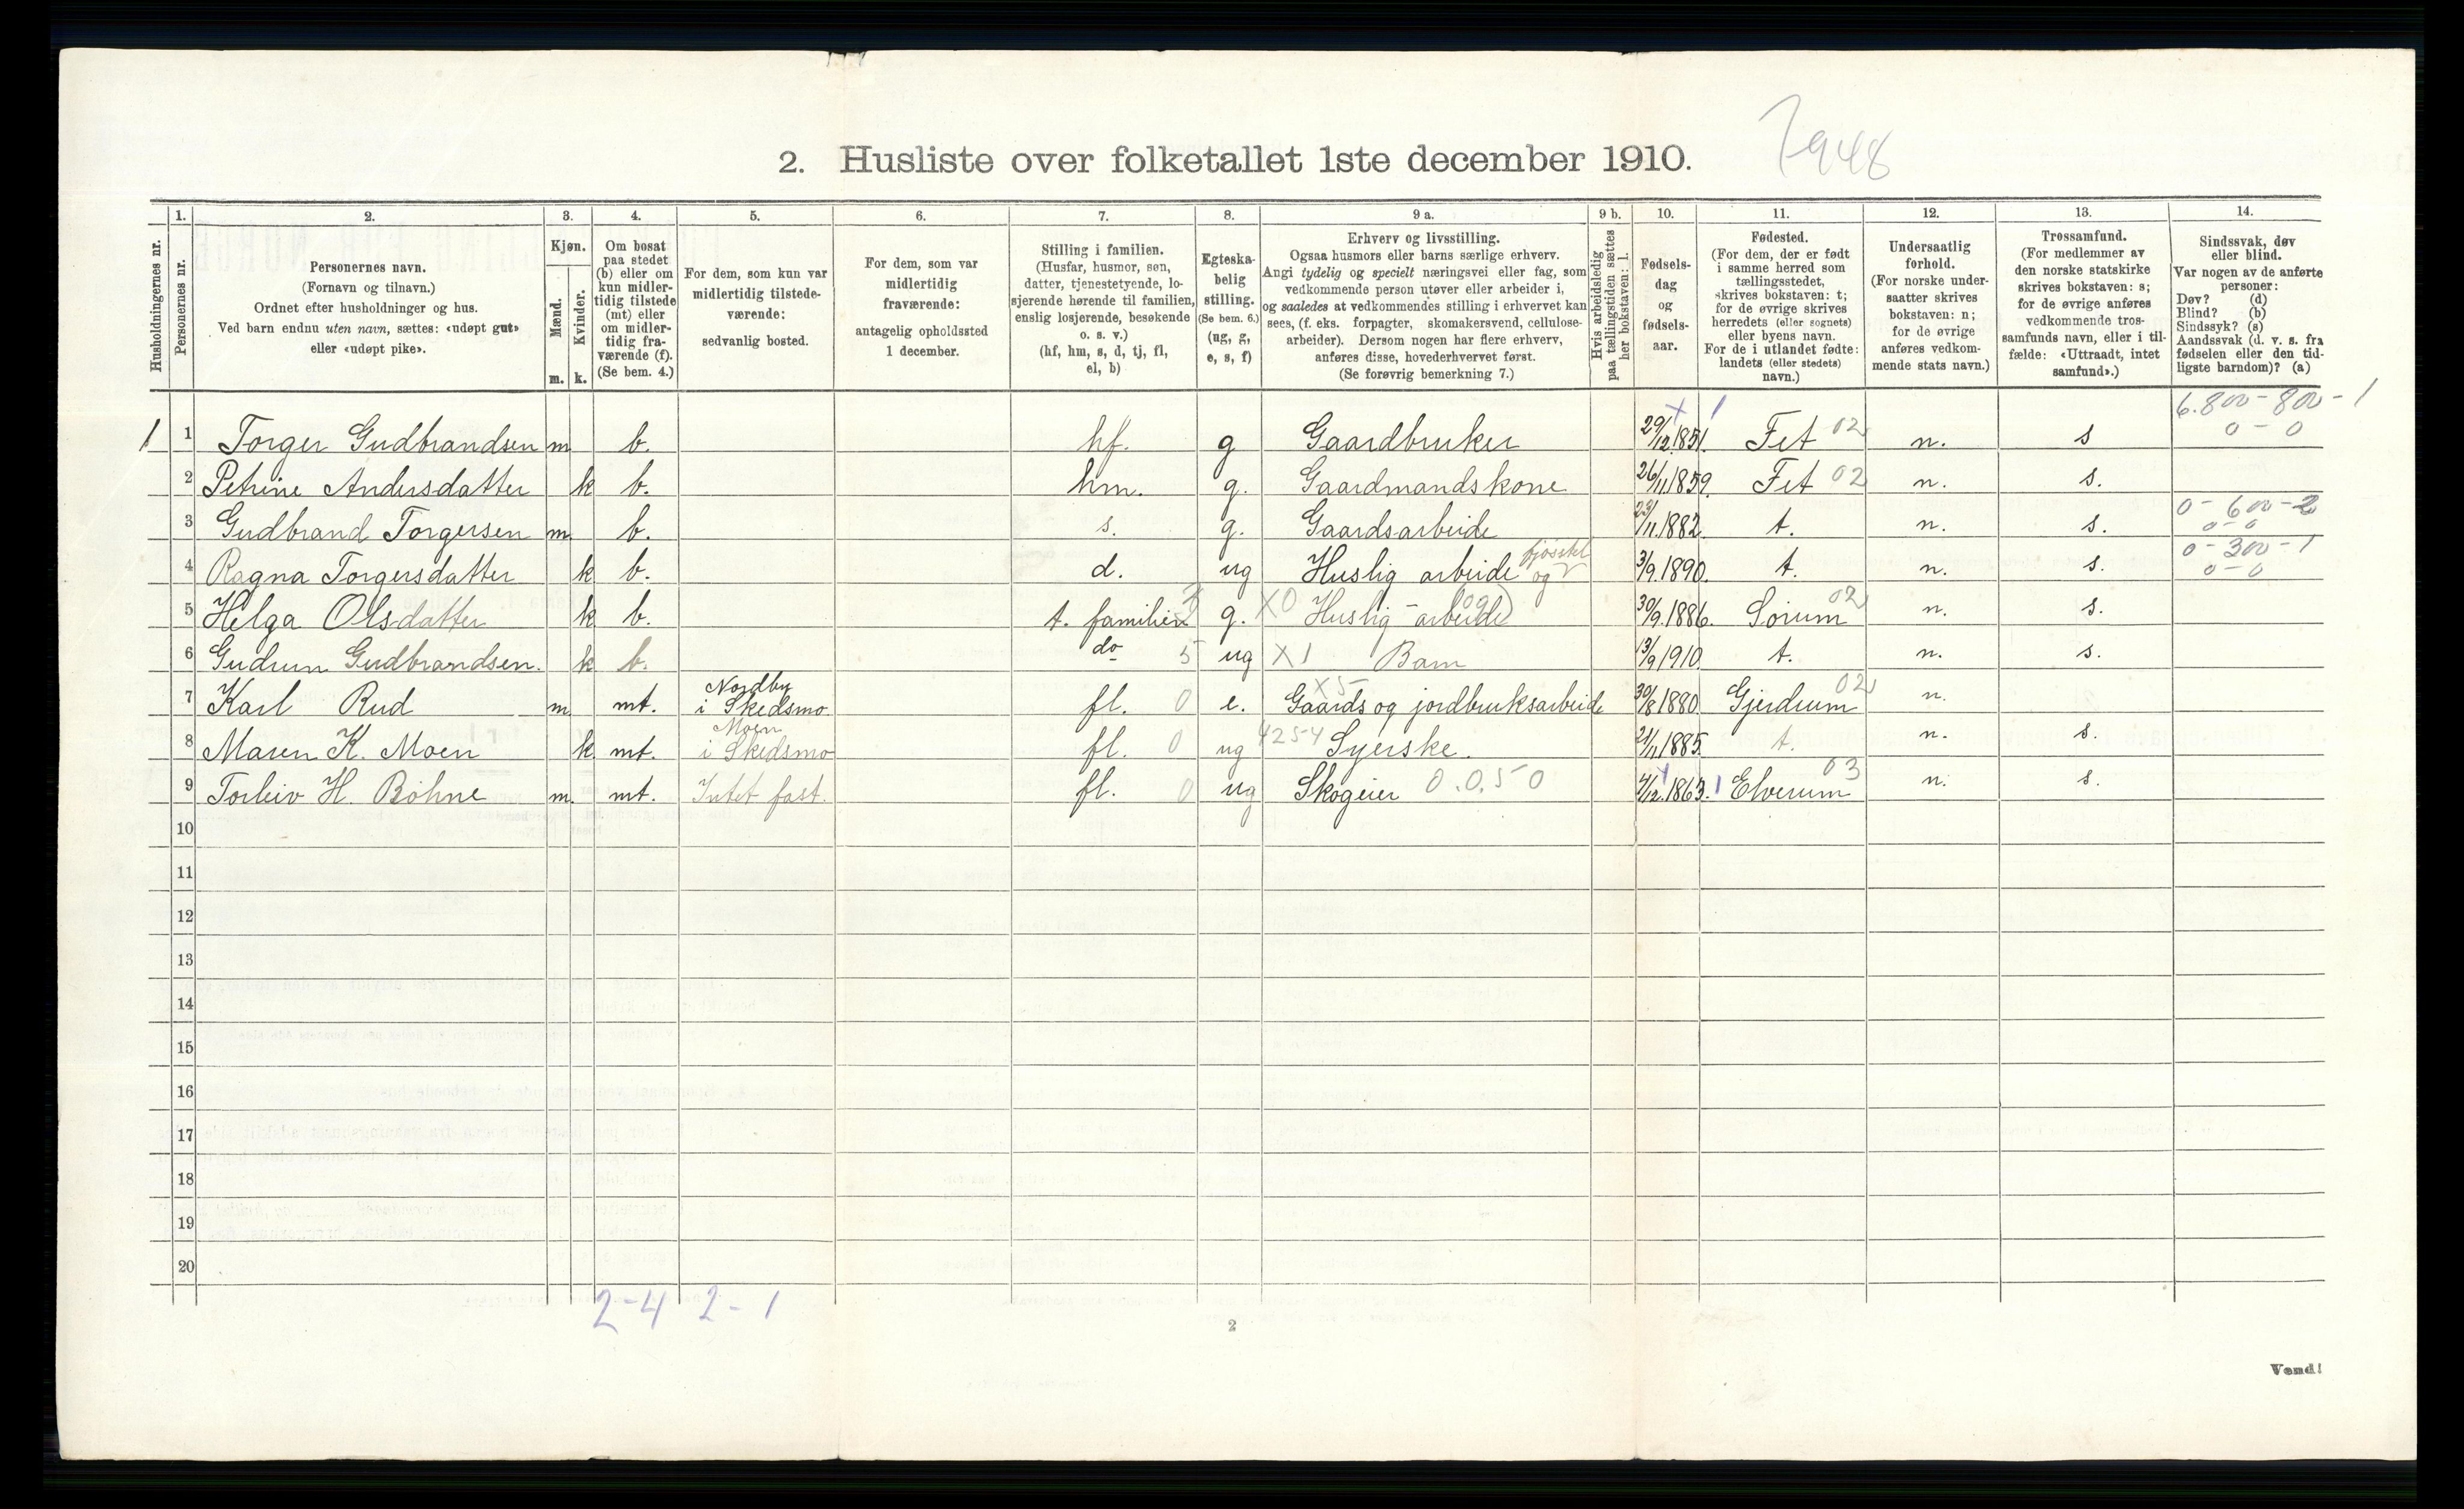 7948
2. Husliste over folketallet 1ste december 1910.
1. 2. 3. 4. 5. 6. 7. 8. 9 a. 9 b. 10. 11. 12. 13. 14.
Husholdningernes nr.
Personernes nr.
Personernes navn.
(Fornavn og tilnavn.)
Ordnet efter husholdninger og hus.
Ved barn endnu uten navn, sættes: «udøpt gut»
eller «udøpt pike».
Kjøn.
Mænd.
Kvinder.
m. k.
Om bosat
paa stedet
(b) eller om
kun midler-
tidig tilstede
(mt) eller
om midler-
tidig fra-
værende (f).
(Se bem. 4.)
For dem, som kun var
midlertidig tilstede-
værende:
sedvanlig bosted.
For dem, som var
midlertidig
fraværende:
antagelig opholdssted
1 december.
Stilling i familien.
(Husfar, husmor, søn,
datter, tjenestetyende, lo-
sjerende hørende til familien,
enslig losjerende, besøkende
o. s. v.)
(hf, hm, s, d, tj, fl,
el, b)
Egteska-
belig
stilling.
(Se bem. 6.)
(ug, g,
e, s, f)
Erhverv og livsstilling.
Ogsaa husmors eller barns særlige erhverv.
Angi tydelig og specielt næringsvei eller fag, som
vedkommende person utøver eller arbeider i,
og saaledes at vedkommendes stilling i erhvervet kan
sees, (f. eks. forpagter, skomakersvend, cellulose-
arbeider). Dersom nogen har flere erhverv,
anføres disse, hovederhvervet først.
(Se forøvrig bemerkning 7.)
Hvis arbeidsledig
paa tællingstiden sættes
her bokstaven: l.
Fødsels-
dag
og
fødsels-
aar.
Fødested.
(For dem, der er født
i samme herred som
tællingsstedet,
skrives bokstaven: t;
for de øvrige skrives
herredets (eller sognets)
eller byens navn.
For de i utlandet fødte:
landets (eller stedets)
navn.)
Undersaatlig
forhold.
(For norske under-
saatter skrives
bokstaven: n;
for de øvrige
anføres vedkom-
mende stats navn.)
Trossamfund.
(For medlemmer av
den norske statskirke
skrives bokstaven: s;
for de øvrige anføres
vedkommende tros-
samfunds navn, eller i til-
fælde: «Uttraadt, intet
samfund».)
Sindssvak, døv
eller blind.
Var nogen av de anførte
personer:
Døv? (d)
Blind? (b)
Sindssyk? (s)
Aandssvak (d. v. s. fra
fødselen eller den tid-
ligste barndom)? (a)
6.800-800-1
1 1 Torger Gudbrandsen m b. hf. g Gaardbruker 29/12.1851. Fet 02 n. s 0-0
2 Petrine Andersdatter k b. hm. g. Gaardmandskone 26/11.1859. Fet 02 n. s.
0-600-2
3 Gudbrand Torgersen m b. s. g. Gaardsarbeide 23/11.1882. t. n. s. 0-0
0-300-1
4 Ragna Torgersdatter k b. d. ug Huslig arbeide og 3/9.1890. t. n. s. 0-0
5 Helga Olsdatter k b. t. familien g. X0 Huslig-arbeide 30/9.1886. Sørum 02 n. s.
6 Gudrun Gudbrandsen. k b. do 5 ug X1 Barn 13/9 1910. t. n. s.
Nordby X5
7 Karl Rud m mt. i Skedsmo fl. 0 e. Gaards og jordbruksarbeide 30/8 1880 Gjerdrum 02 n.
Moen
8 Maren K. Moen k. mt. i Skedsmo fl. 0 ug 4254 Syerske. 21/11.1885. t. n. s.
9 Torleiv H. Bøhne m. mt. Intet fast. fl. 0 ug Skogeier 0.0.50 4/12.1863. Elverum 03 n. s.
10
11
12
13
14
15
16
17
18
19
20
2-4 2-1
2
Vend!